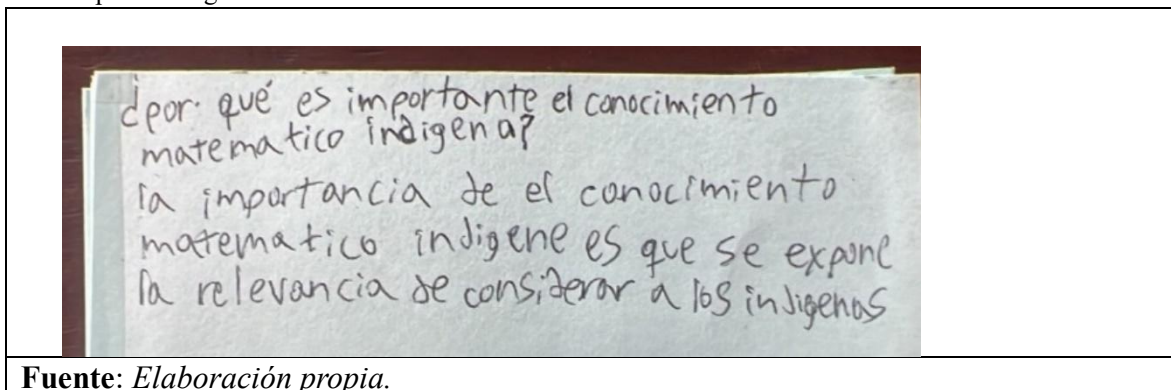 ¿por qué es importante el conocimiento
matematico indigena?
la importancia de el conocimiento
matematico indigene es que se expone
la relevancia de considerar a los indigenas
Fuente: Elaboración propia.